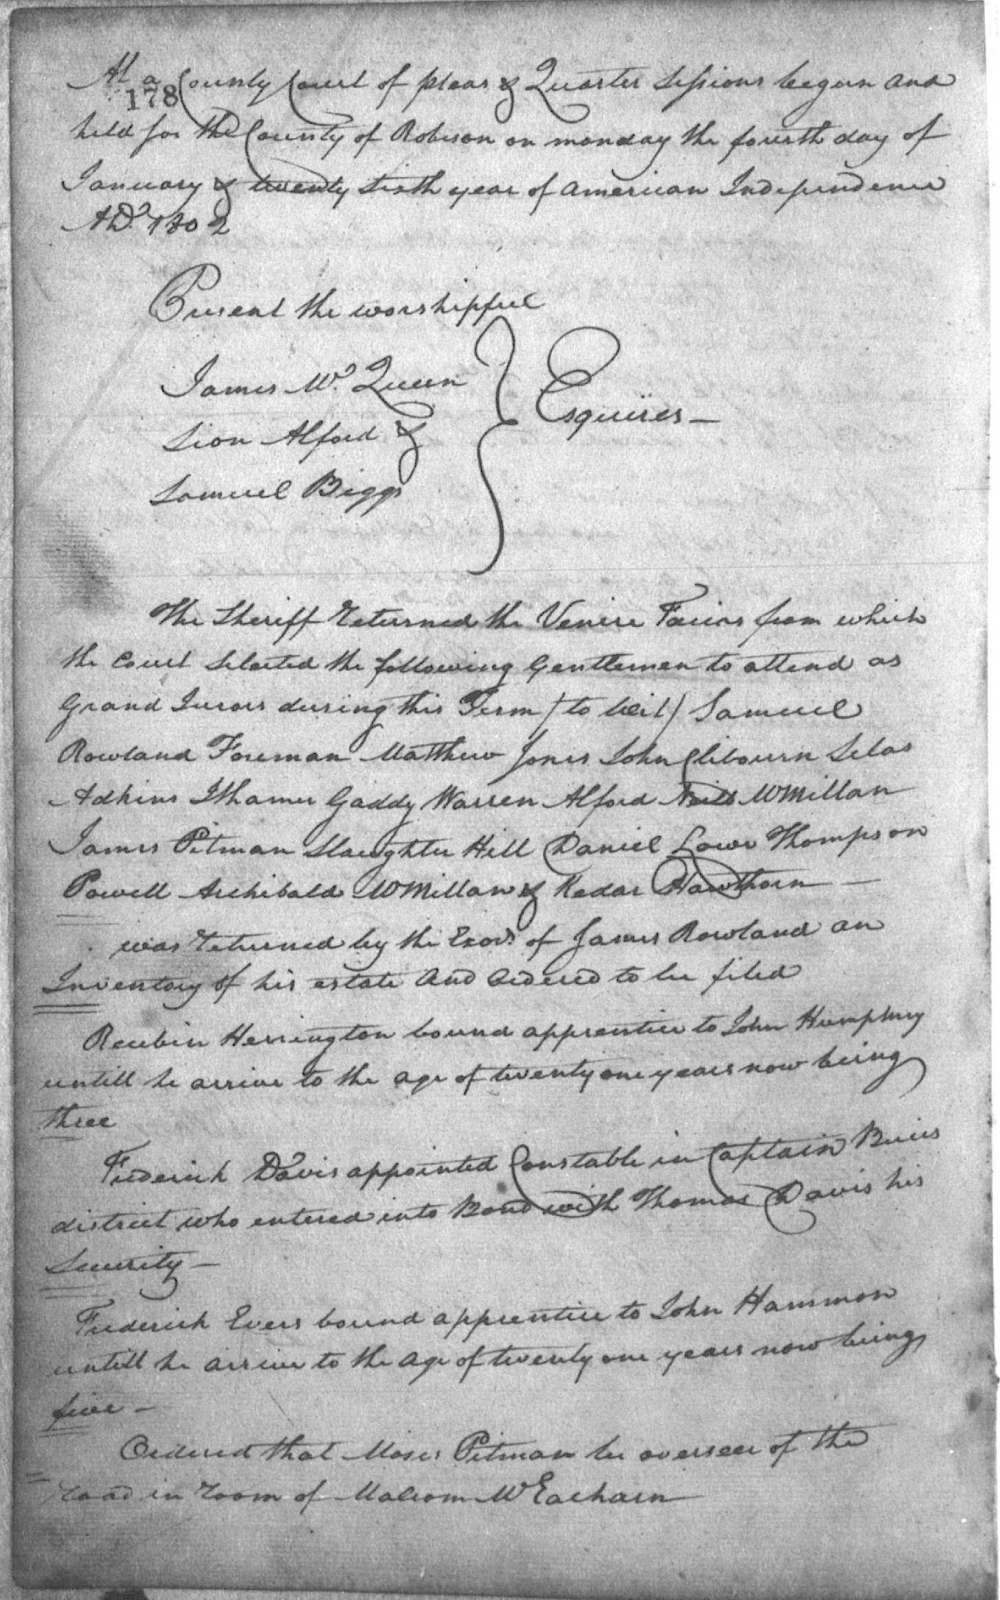 At a County Court of pleas & Quarter Sessions began and
178
held for the County of Robeson on monday the fourth day of
January & twenty sixth year of American Independence
AD. 1802
Present the worshipful
James Mc. Queen
Sion Alford &
Samuel Biggs
} Esquires —
The Sheriff Returned the Venire Facias from which
the Court Selected the following Gentlemen to attend as
Grand Jurors during this Term (to wit) Samuel
Rowland Foreman Matthew Jones John Clibourn Silas
Adkins Ithamer Gaddy Warren Alford Neill McMillan
James Pitman Slaughter Hill Daniel Lowe Thompson
Powell Archibald McMillan & Kedar Hawthorn —
was returned by the Exors of James Rowland an
Inventory of his estate and ordered to be filed
Reubin Herrington bound apprentice to John Humphrey
untill he arrive to the age of twenty one years now being
three
Frederick Davis appointed Constable in Captain
district who entered into Bond with Thomas Davis his
Security —
Frederick Evers bound apprentice to John Hammon
untill he arrive to the age of twenty one years now being
five —
Ordered that Moses Pitman be overseer of the
road in room of Malcom McEacharn